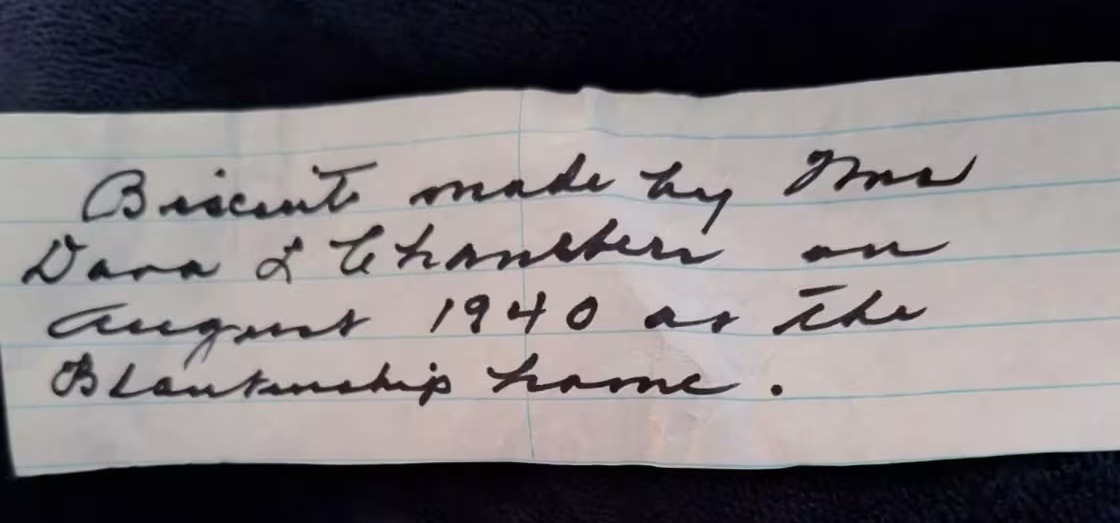 Biscuits made by Mrs
Dora L Chambers on
August 1940 as the
Blankenship home.